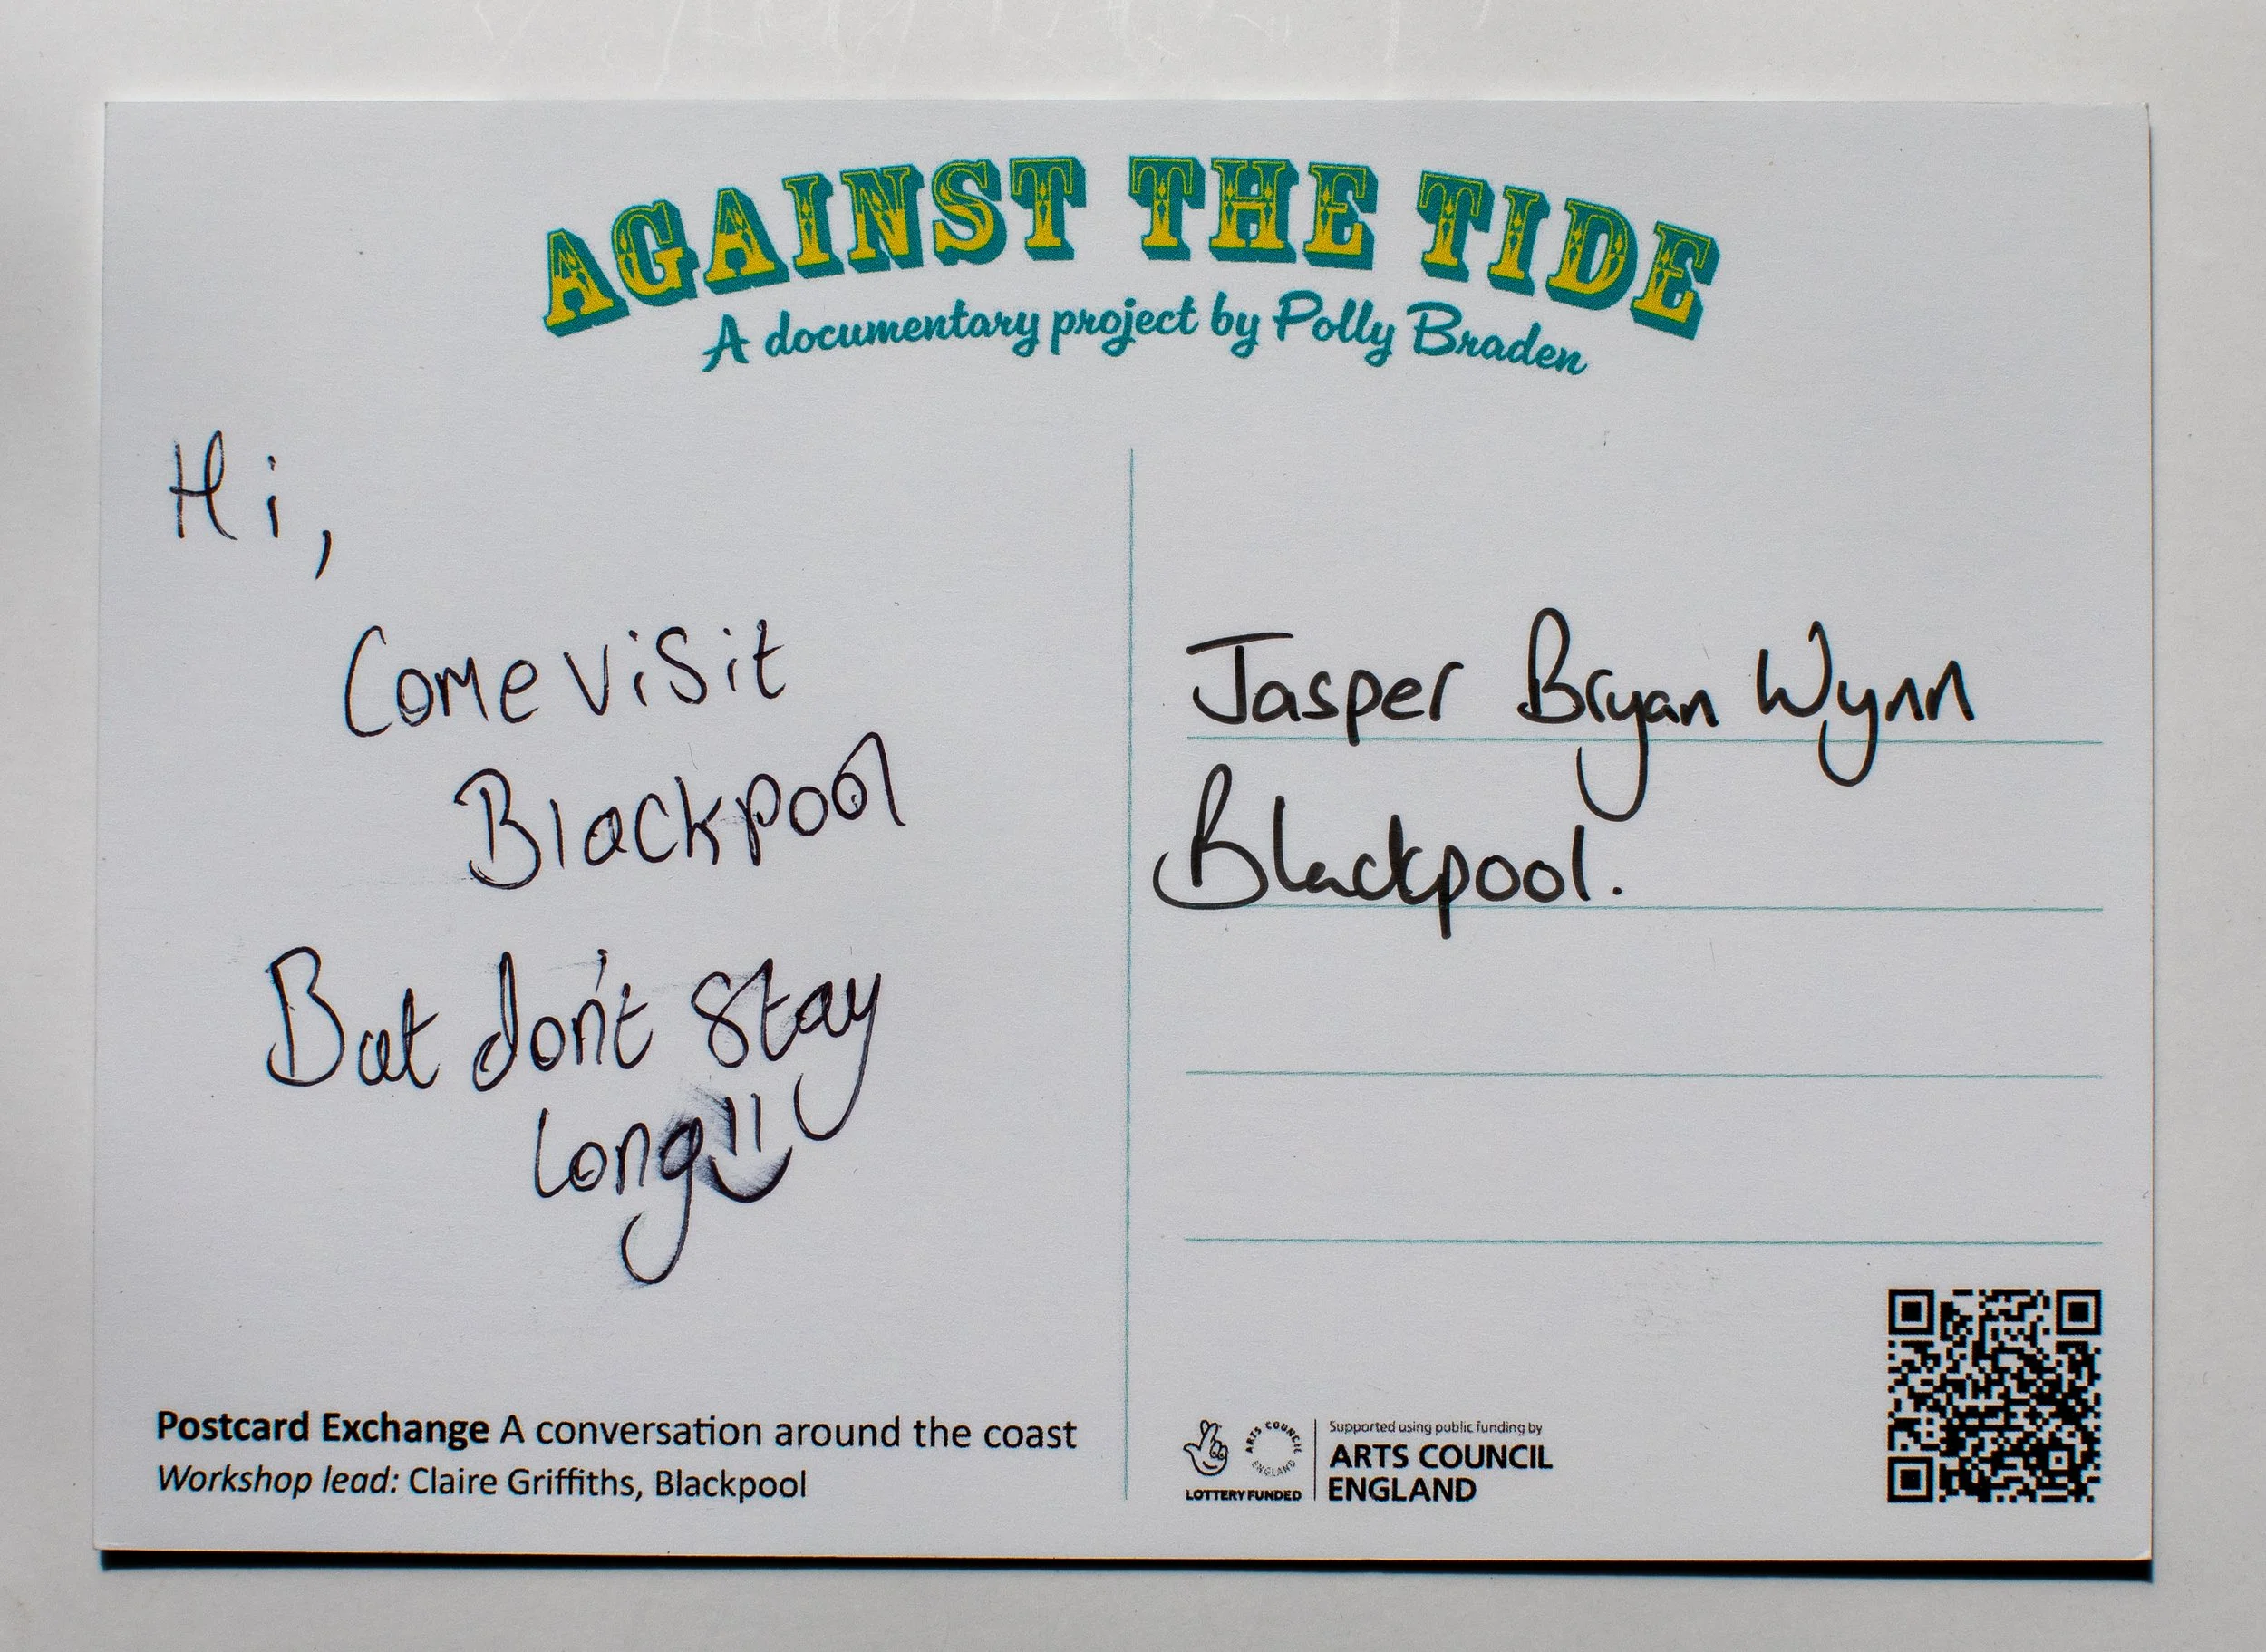 AGAINST THE TIDE
A documentary project by Polly Braden
Hi,
Come visit
Blackpool
But don't stay
long!!
Jasper Bryan Wynn
Blackpool.
Postcard Exchange A conversation around the coast
Workshop lead: Claire Griffiths, Blackpool
ARTS COUNCIL ENGLAND
LOTTERY FUNDED
Supported using public funding by
ARTS COUNCIL
ENGLAND